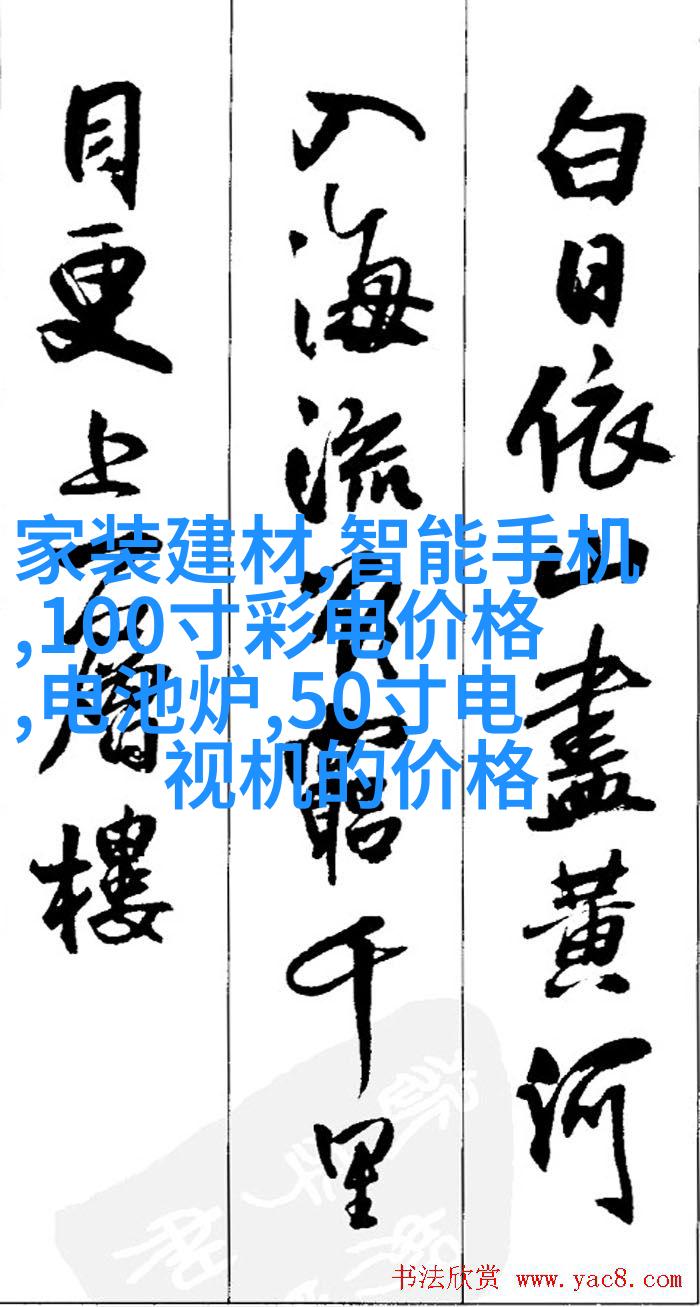 白日依山盡黄河
入海流欲窮千里
目更上一層樓
家装建材,智能手机
,100寸彩电价格
,电池炉,50寸电
视机的价格
书法欣赏 www.yac8.com